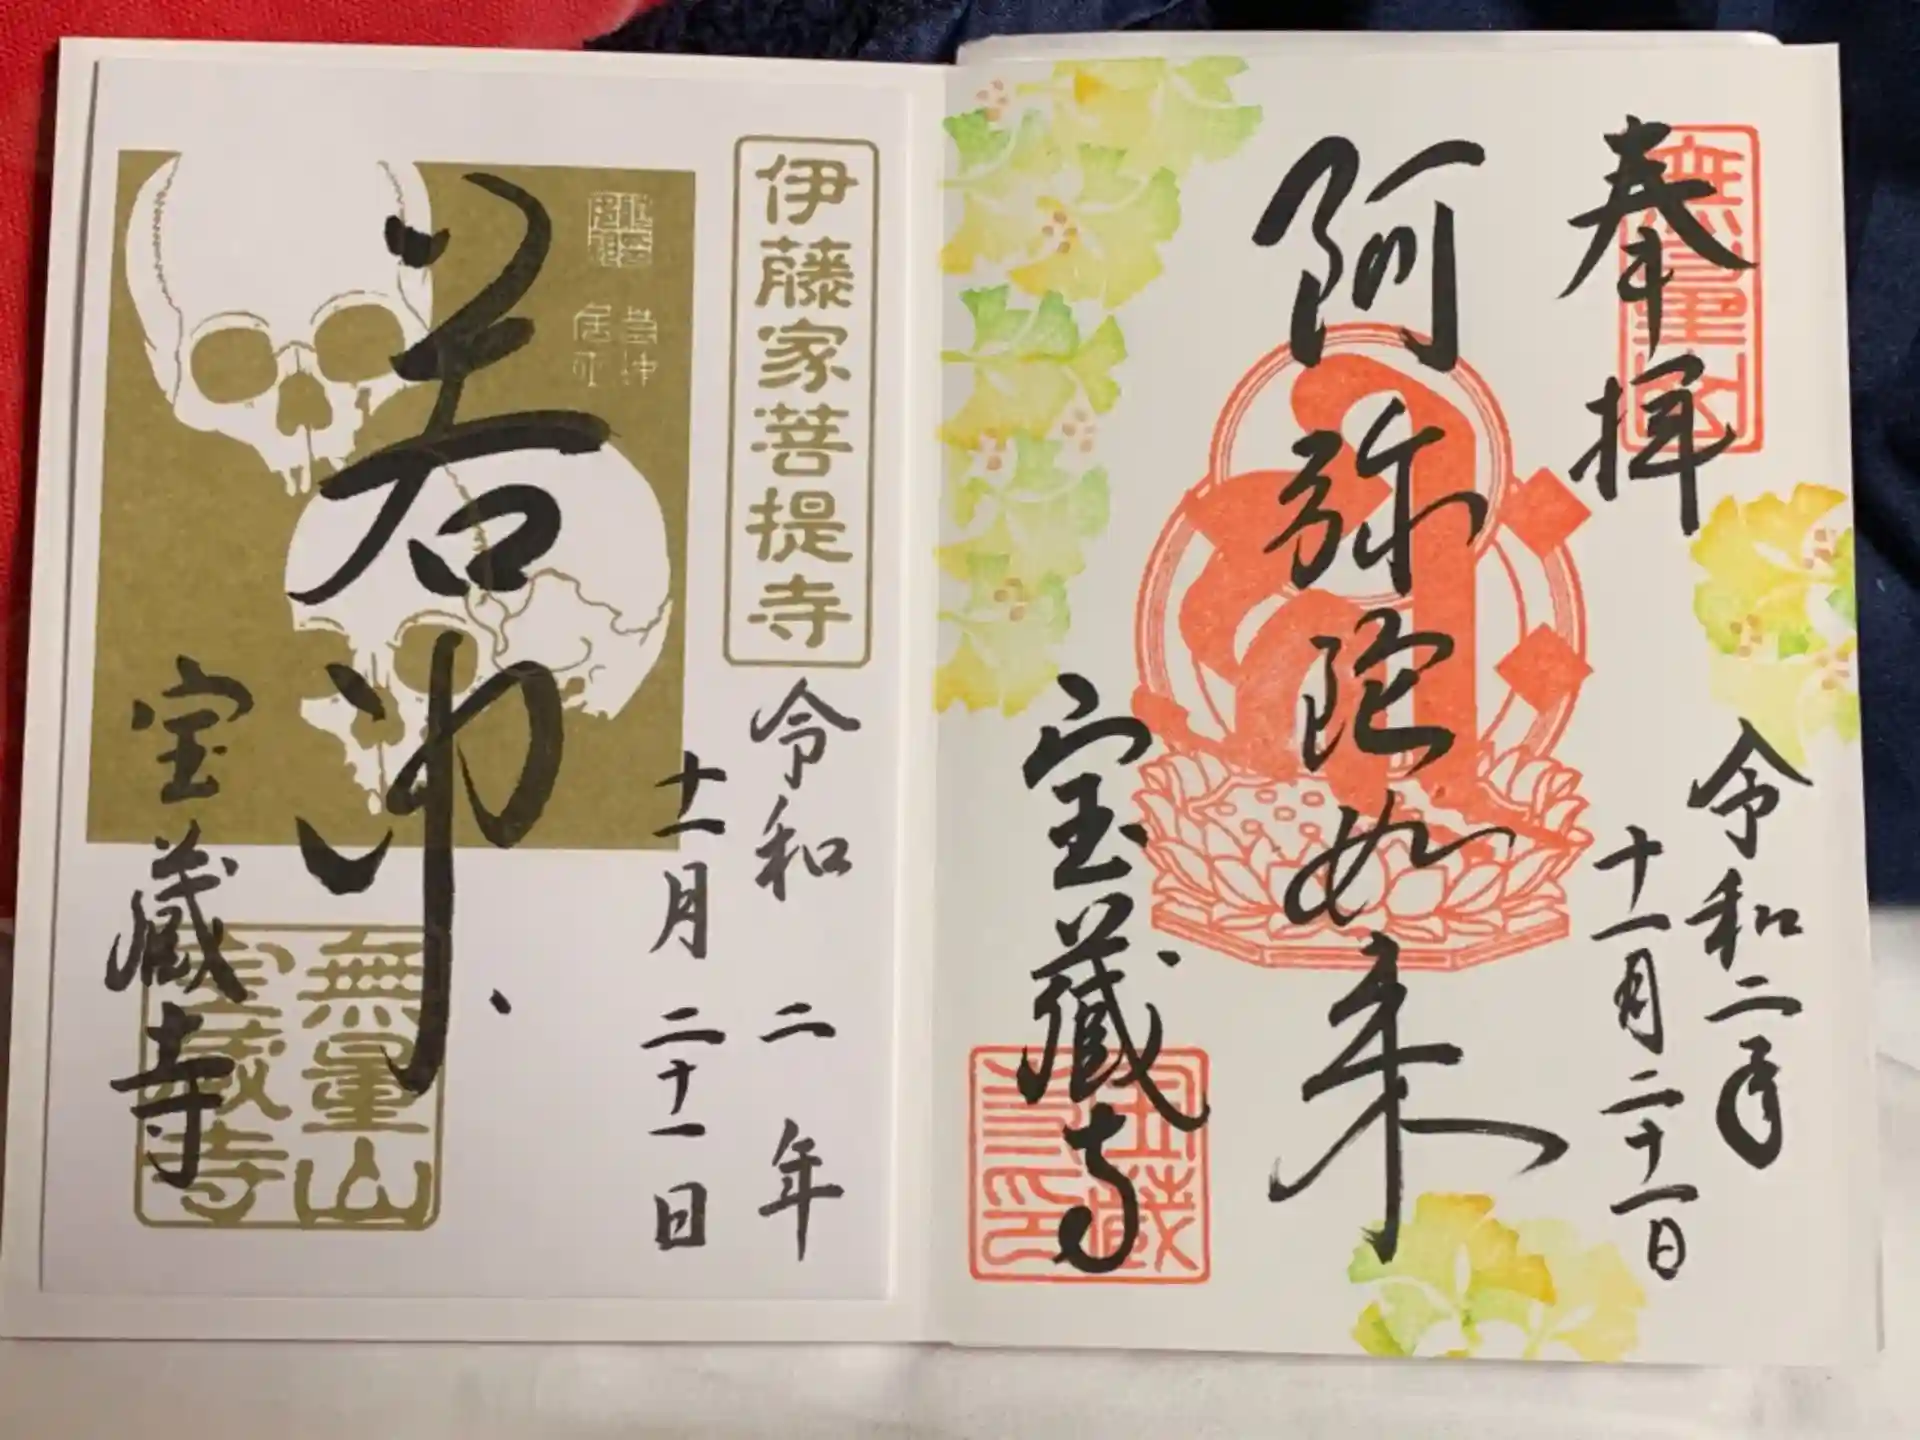 奉拝
無量山
令和二年
十一月二十一日
阿弥陀如来
宝蔵寺
伊藤家菩提寺
令和二年
十一月二十一日
若冲
宝蔵寺
無量山
宝蔵寺